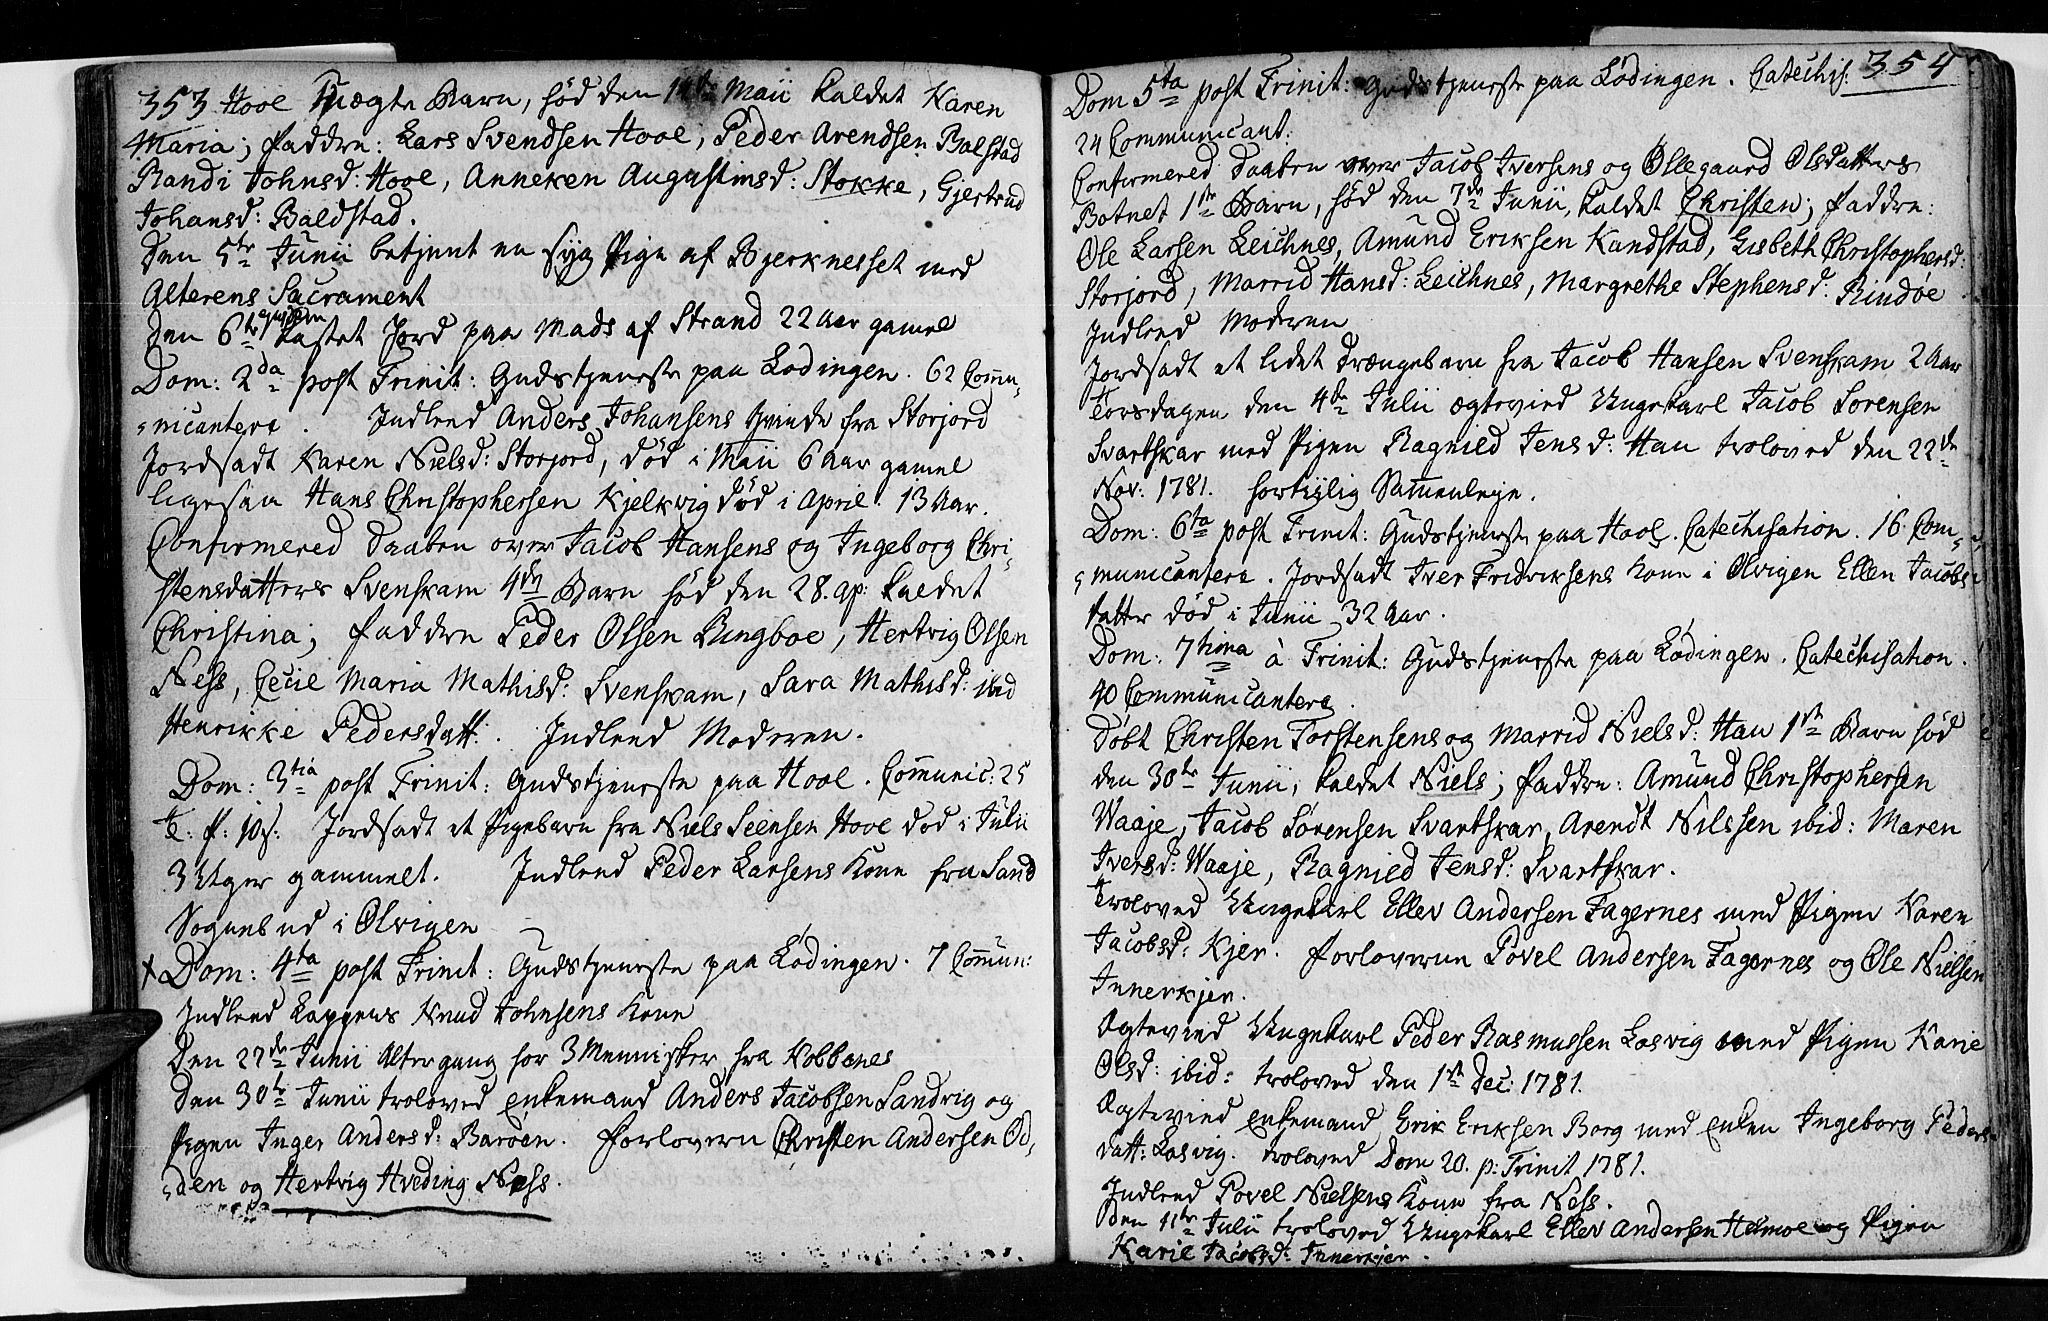 353 Hool Uægte Barn, fød den 14de Maii kaldet Karen
Maria; Faddre: Lars Svendsen Hool, Peder Arendsen Balstad
Randi Johnsd: Hool, Anneken Augustinsd: Stokke, Gjertrud
Johansd: Baldstad.
Den 5te Junii betjent en syg Pige af Bjerknesset med
Alterens Sacrament
Den 6te kastet Jord paa Mads af Strand 22 Aar gamel
Dom: 2da post Trinit: Gudstjeneste paa Lødingen. 62 Commu-
nicantere. Indleed Anders Johansens Qvinde fra Storjord
Jordsadt Karen Nielsd: Storjord, død i Maii 6 Aar gamel
ligesaa Hans Christophersen Kjelkvig død i April. 13 Aar.
Confirmered Daaben over Jacob Hansens og Ingeborg Chri-
stensdatters Svenskam 4de Barn fød den 28. ap: kaldet
Christina; Faddre Peder Olsen Rungboe, Hertvig Olsen
Ness, Cecie Maria Mathisd: Svenskam, Sara Mathisd: ibid
Henrikke Pedersdatt:. Indleed Moderen.
Dom: 3tia post Trinit: Gudstjeneste paa Hool. Communic: 25
Jordsadt et Pigebarn fra Niels Seensen Hool død i Julii
3 Uger gammelt. Indleed Peder Larsens Kone fra Sand
Sognebud i Olvigen
Dom: 4ta post Trinit: Gudstjeneste paa Lødingen. 7 Commun:
Indleed Lappens Knud Johnsens Kone
Den 27de Junii Altergang for 3 Mennisker fra Kobbenes
Den 30te Junii troloved enkemand Anders Jacobsen Sandvig og
Pigen Inger Andersd: Barøen. Forlovere Christen Andersen Od-
den og Hertvig Hveding Ness.
354
Dom 5ta post Trinit: Gudstjeneste paa Lødingen. Catechis:
24 Communicant:
Confirmered Daaben over Jacob Iversens og Ollegaard Olsdatters
Botnet 1ste Barn, fød den 7de Junii, kaldet Christen; Faddre:
Ole Larsen Leichnes, Amund Eriksen Kandstad, Lisbeth Christophersd:
Storjord, Marrid Hansd: Leichnes, Margrethe Stephensd: Rindøe
Indleed Moderen
Jordsadt et lidet Drængebarn fra Jacob Hansen Svenskam 2 Aar
Torsdagen den 4de Julii ægtevied Ungekarl Jacob Sørensen
Svartskar med Pigen Ragnild Jensd: Hau troloved den 22de
Nov: 1781. fortiilig Samenleje.
Dom: 6ta post Trinit: Gudstjeneste paa Hool. Catechisation. 16 Com-
municantere. Jordsadt Iver Fridriksens Kone i Olvigen Ellen Jacobs-
datter død i Junii 32 Aar.
Dom: 7tima à Trinit: Gudstjeneste paa Lødingen. Catechisation.
40 Communicantere.
Døbt Christen Torstensens og Marrid Nielsd: Hau 1ste Barn fød
den 30te Junii, kaldet Niels; Faddre: Amund Christophersen
Waaje, Jacob Sørensen Svartskar, Arendt Nilssen ibid: Maren
Iversd: Waaje, Ragnied Jensd: Svartskar.
Troloved Ungekarl Ellev Andersen Fagernes med Pigen Karen
Jacobsd: Kjer. Forloverne Povel Andersen Fagernes og Ole Nielsen
Innerkjer.
Ægteviied Ungekarl Peder Rasmussen Løsvig med Pigen Karie
Olsd: ibid: troloved den 1ste Dec: 1781.
Ægteviied enkemand Erik Eriksen Borg med enken Ingeborg Peders-
datt: Løsvig. troloved Dom 20. p: Trinit 1781.
Indleed Povel Nielsens Kone fra Ness.
Den 11te Julii troloved Ungekarl Ellev Andersen Helmoe og Pigen
Karie Jacobsd: Innerkjer.